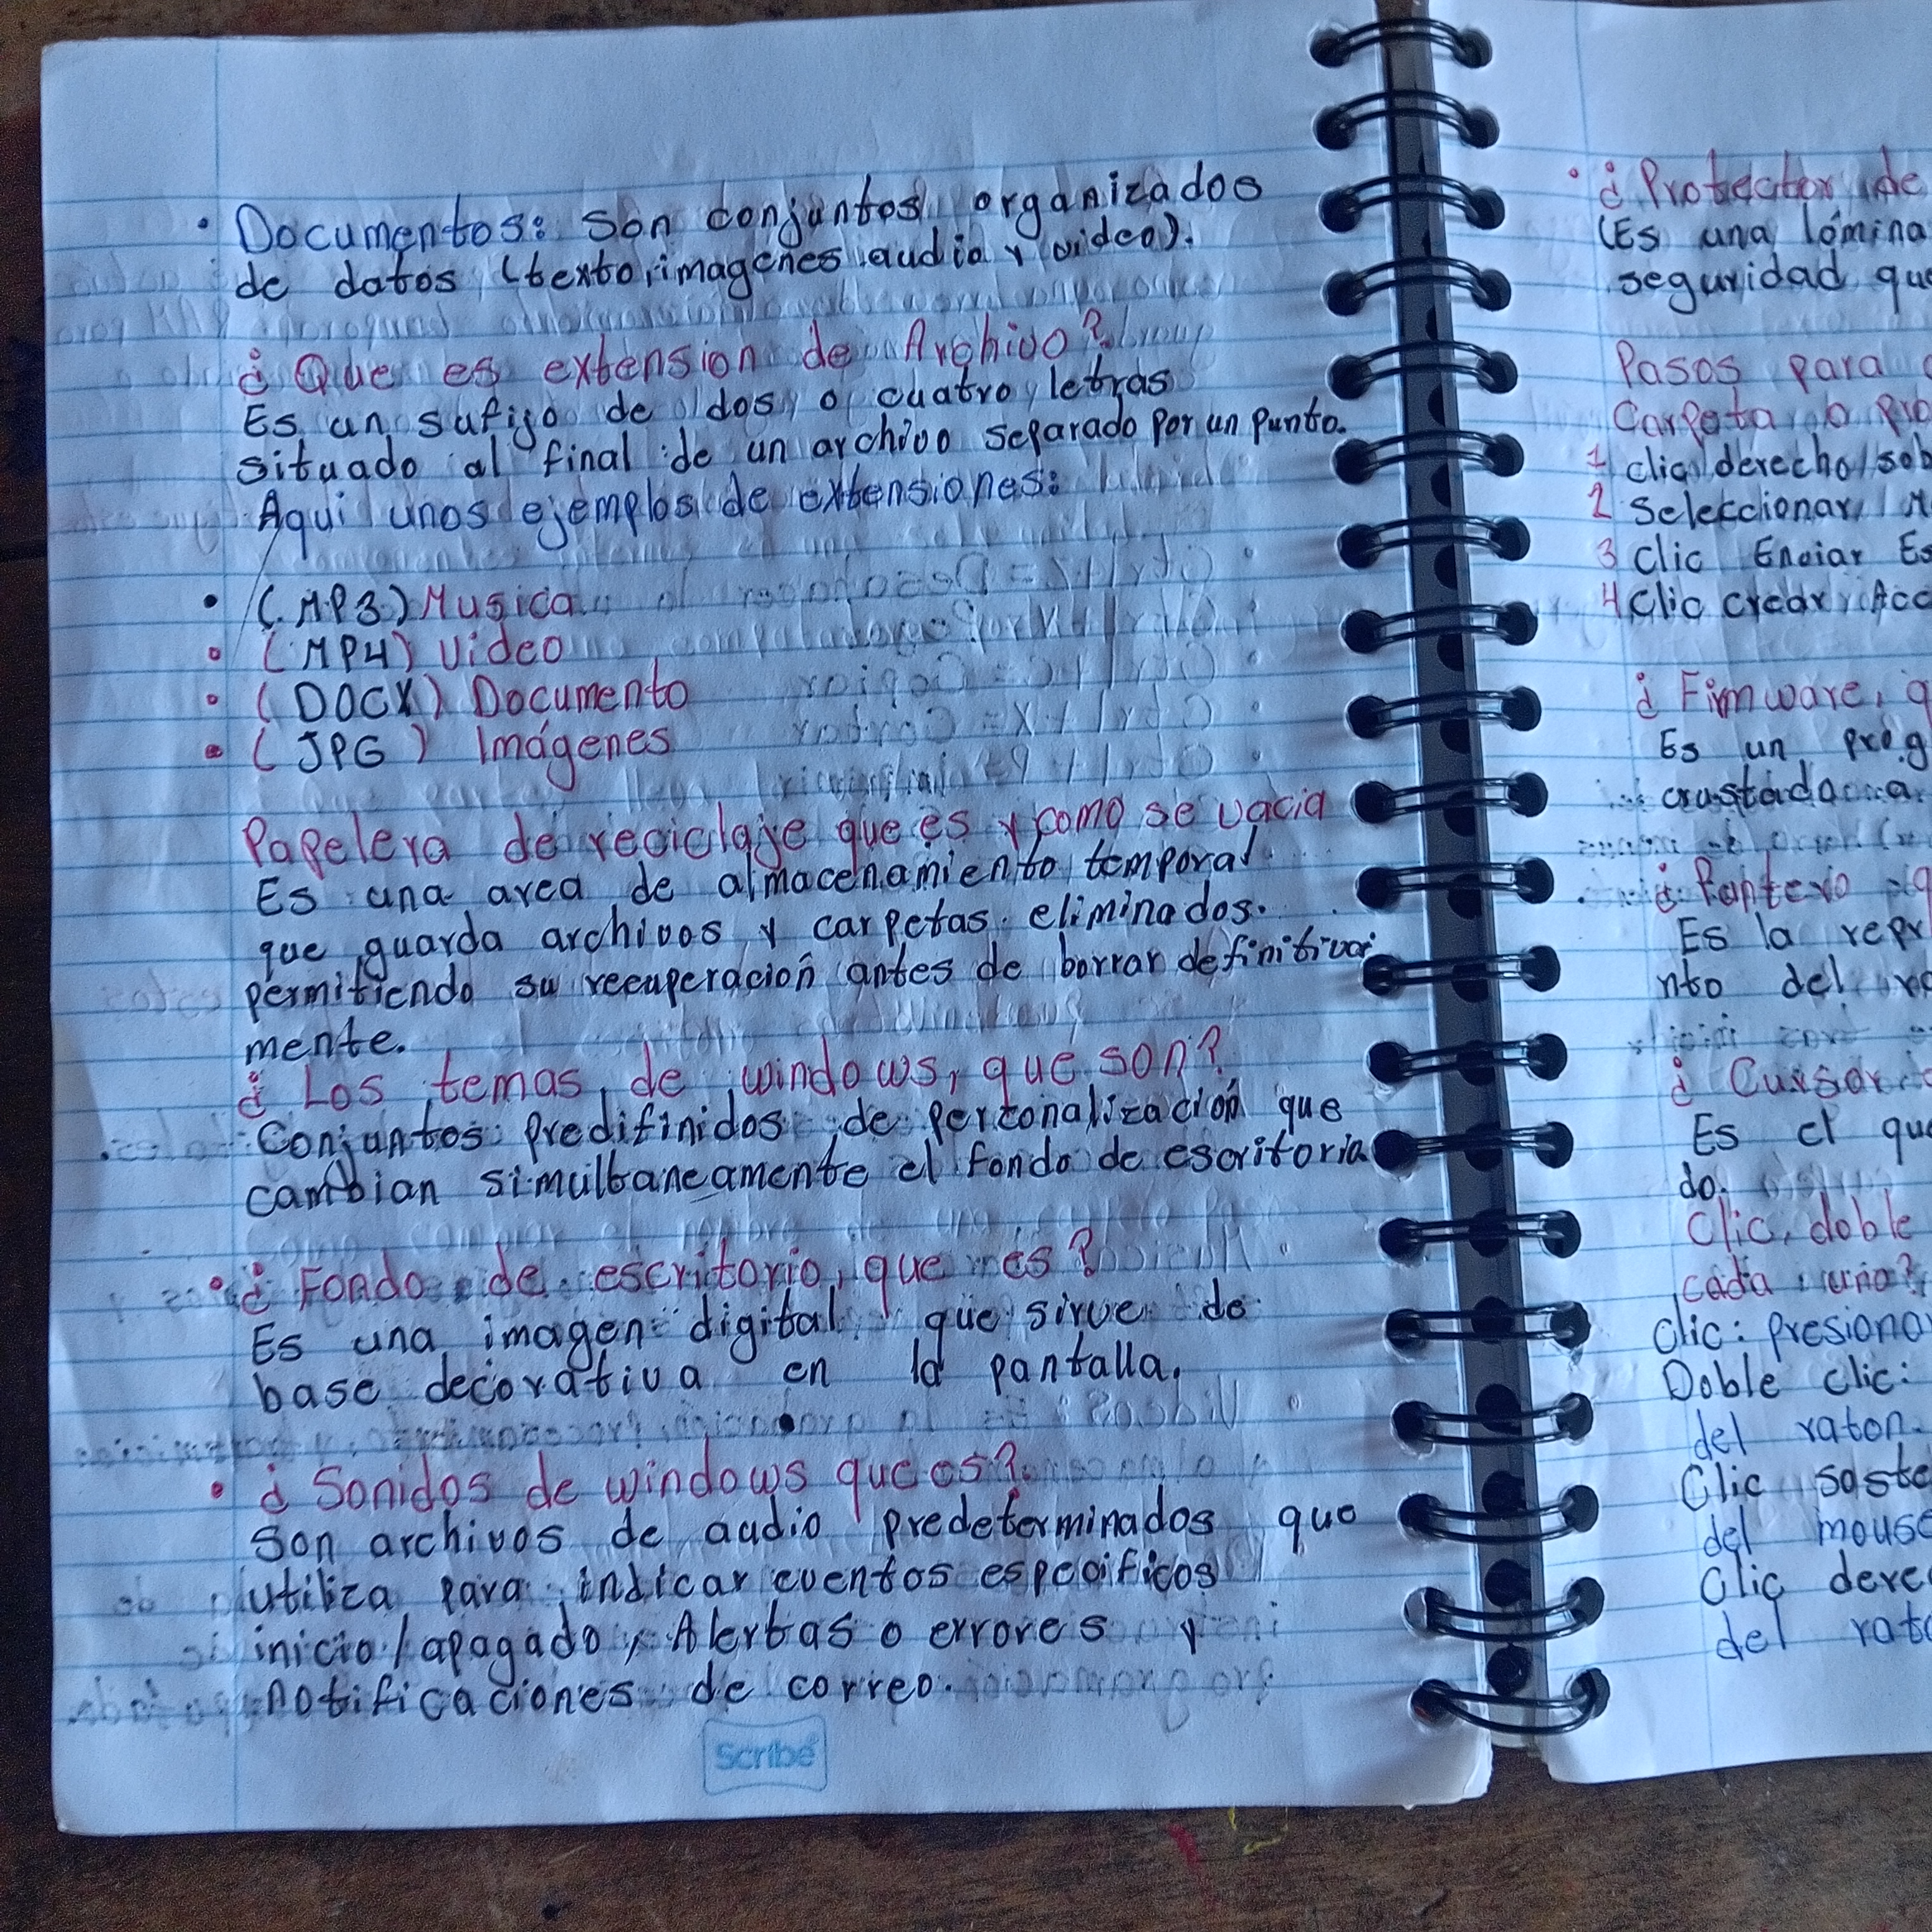 • Documentos: Son conjuntos organizados
de datos (texto, imagenes audio y video).
¿Que es extension de Archivo?
Es un sufijo de dos o cuatro letras
situado al final de un archivo separado por un punto.
Aqui unos ejemplos de extensiones:
• (.MP3) Musica
• (MP4) video
• (DOCX) Documento
• (JPG) Imágenes
Papelera de reciclaje que es y como se vacia
Es una area de almacenamiento temporal
que guarda archivos y carpetas eliminados.
permitiendo su recuperación antes de borrar definitiva
mente.
¿Los temas de windows, que son?
Conjuntos predifinidos de perzonalización que
cambian simultaneamente el fondo de escritoria
• ¿Fondo de escritorio, que es?
Es una imagen digital que sirve de
base decorativa en la pantalla.
• ¿Sonidos de windows que es?
Son archivos de audio predeterminados que
utiliza para indicar eventos especificos
inicio/apagado, Alertas o errores y
notificaciones de correo.
Scribe
• ¿Protector de
(Es una lómina
seguridad que
Pasos para
Carpeta o
1 clic derecho sob
2 Seleccionar
3 Clic Enviar Es
4 Clic crear Acc
¿Firmware, q
Es un prog
crustado a
• ¿Puntero
Es la repr
nto del
¿Cursor
Es el que
do.
Clic, doble
cada uno?
Clic: Presiona
Doble clic:
del raton.
Clic soste
del mouse
Clic dere
del rato